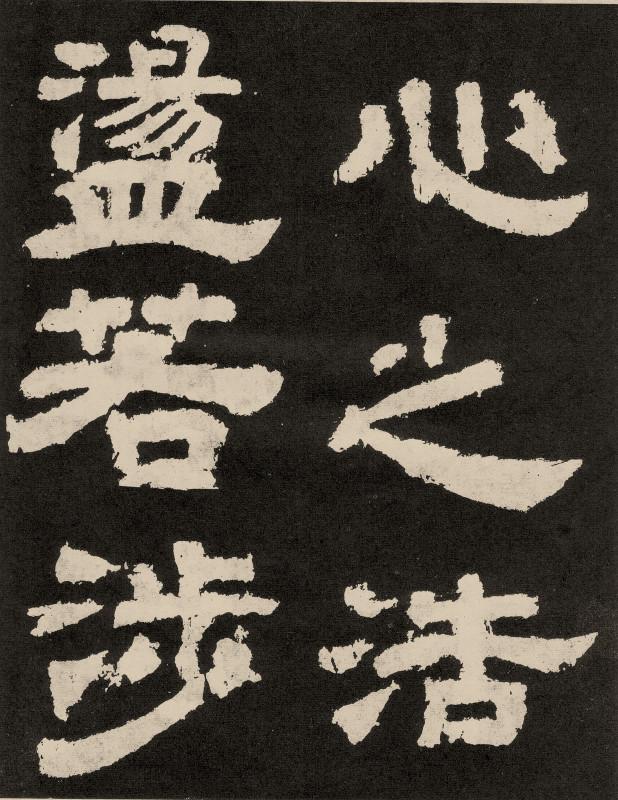 心之浩
盪若涉